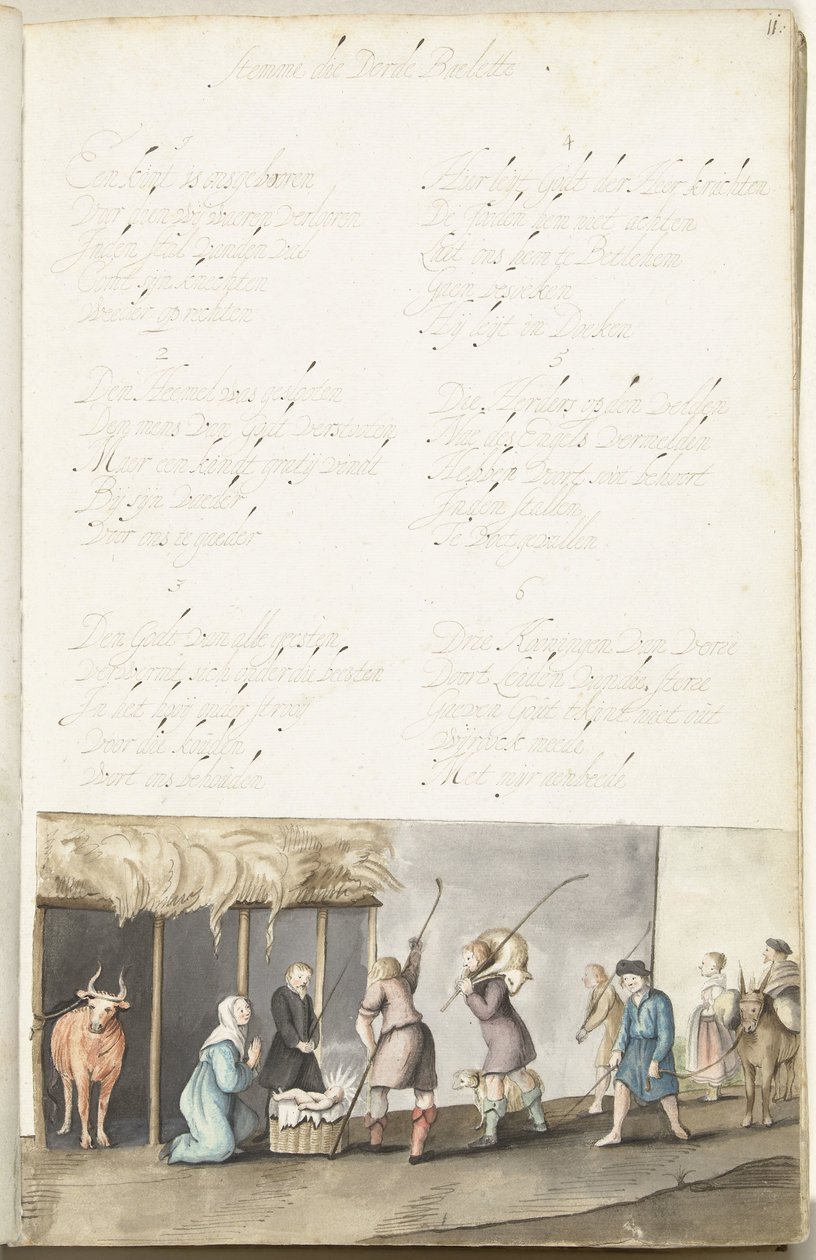 11.
Stemme die Derde Baelette
1
Een kint is ons gebooren
Daer wij waeren verlooren
In een stal vanden
Comt sijn knechten
Weeder op rechten
2
Den Heemel was geslooten
Den mens van Godt verstooten
Maer een kindt gratij vindt
Bij sijn vaeder
Voor ons te gaeder
3
Den Godt van alle geesten
Verwermt sich onder die beesten
In het hooij onder strooij
Voor die kouden
Wort ons behouden
4
Hier leijt Godt der Heer krachten
De Jooden hem niet achten
Laet ons hem te Betlehem
Gaen besoeken
Hij leijt in Doeken
5
Die Herders op den velden
Nae des Engels vermelden
Hebben voort soot behoort
In den stallen
Te Voet gevallen
6
Drie Kooningen van veree
Doort Leiden van die sterre
Gaeven Gout t kint niet out
Wijroock meede
Met mijr aenbeede